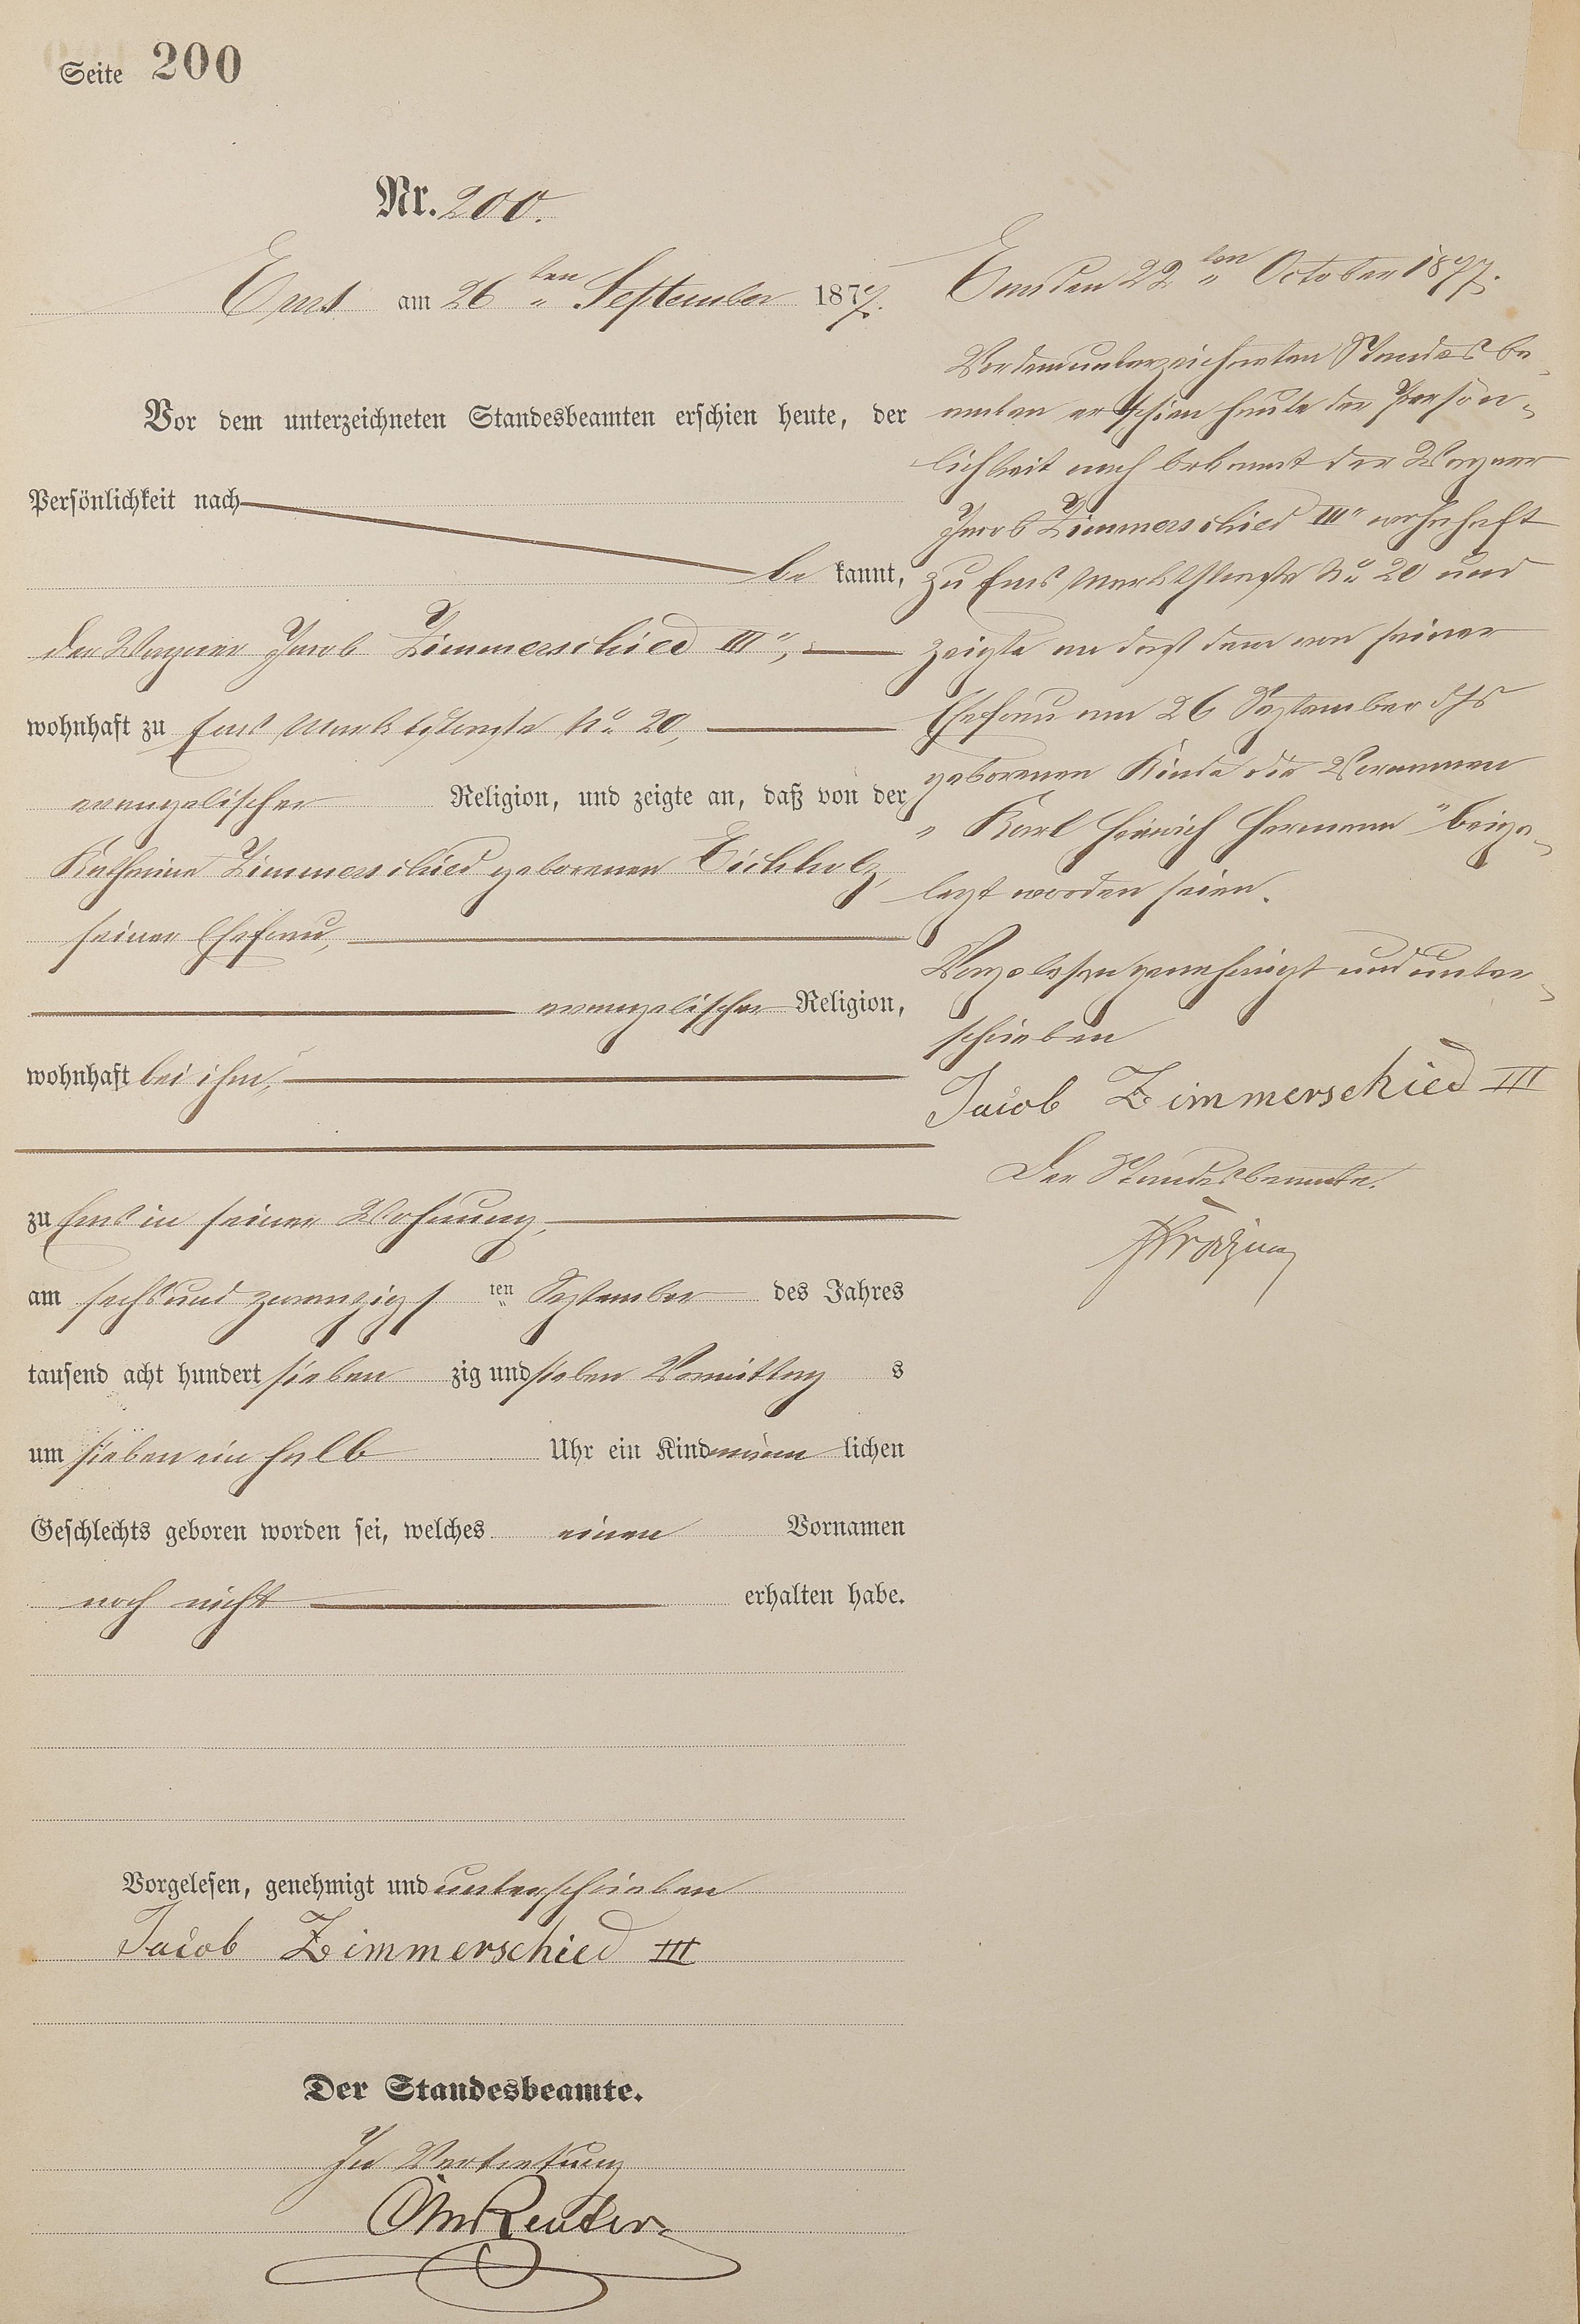 Seite 200
Nr. 200.
Ems am 26ten September 1877.
Vor dem unterzeichneten Standesbeamten erschien heute, der
Persönlichkeit nach
be kannt,
der Wagner Jacob Zimmerschied III",
wohnhaft zu Ems Marktstraße No 20,
evangelischer Religion, und zeigte an, daß von der
Katharina Zimmerschied geborenen Eichholz,
seiner Ehefrau,
evangelischer Religion,
wohnhaft bei ihm,
zu Ems in seiner Wohnung,
am sechsundzwanzigs ten September des Jahres
tausend acht hundert sieben zig und sieben Vormittag s
um sieben ein halb Uhr ein Kind männ lichen
Geschlechts geboren worden sei, welches einen Vornamen
noch nicht erhalten habe.
Vorgelesen, genehmigt und unterschrieben
Jacob Zimmerschied III
Der Standesbeamte.
In Vertretung
Reuter
Ems den 22ten October 1877.
Vor dem unterzeichneten Standesbe-
amten erschien heute der Persön-
lichkeit nach bekannt der Wagner
Jacob Zimmerschied III" wohnhaft
zu Ems Marktstraße No 20 und
zeigte an daß dem von seiner
Ehefrau am 26 September dJs
geborenen Kinde die Vornamen
"Karl Heinrich Hermann" beige-
legt worden seien.
Vorgelesen genehmigt und unter-
schrieben
Jacob Zimmerschied III
Der Standesbeamte.